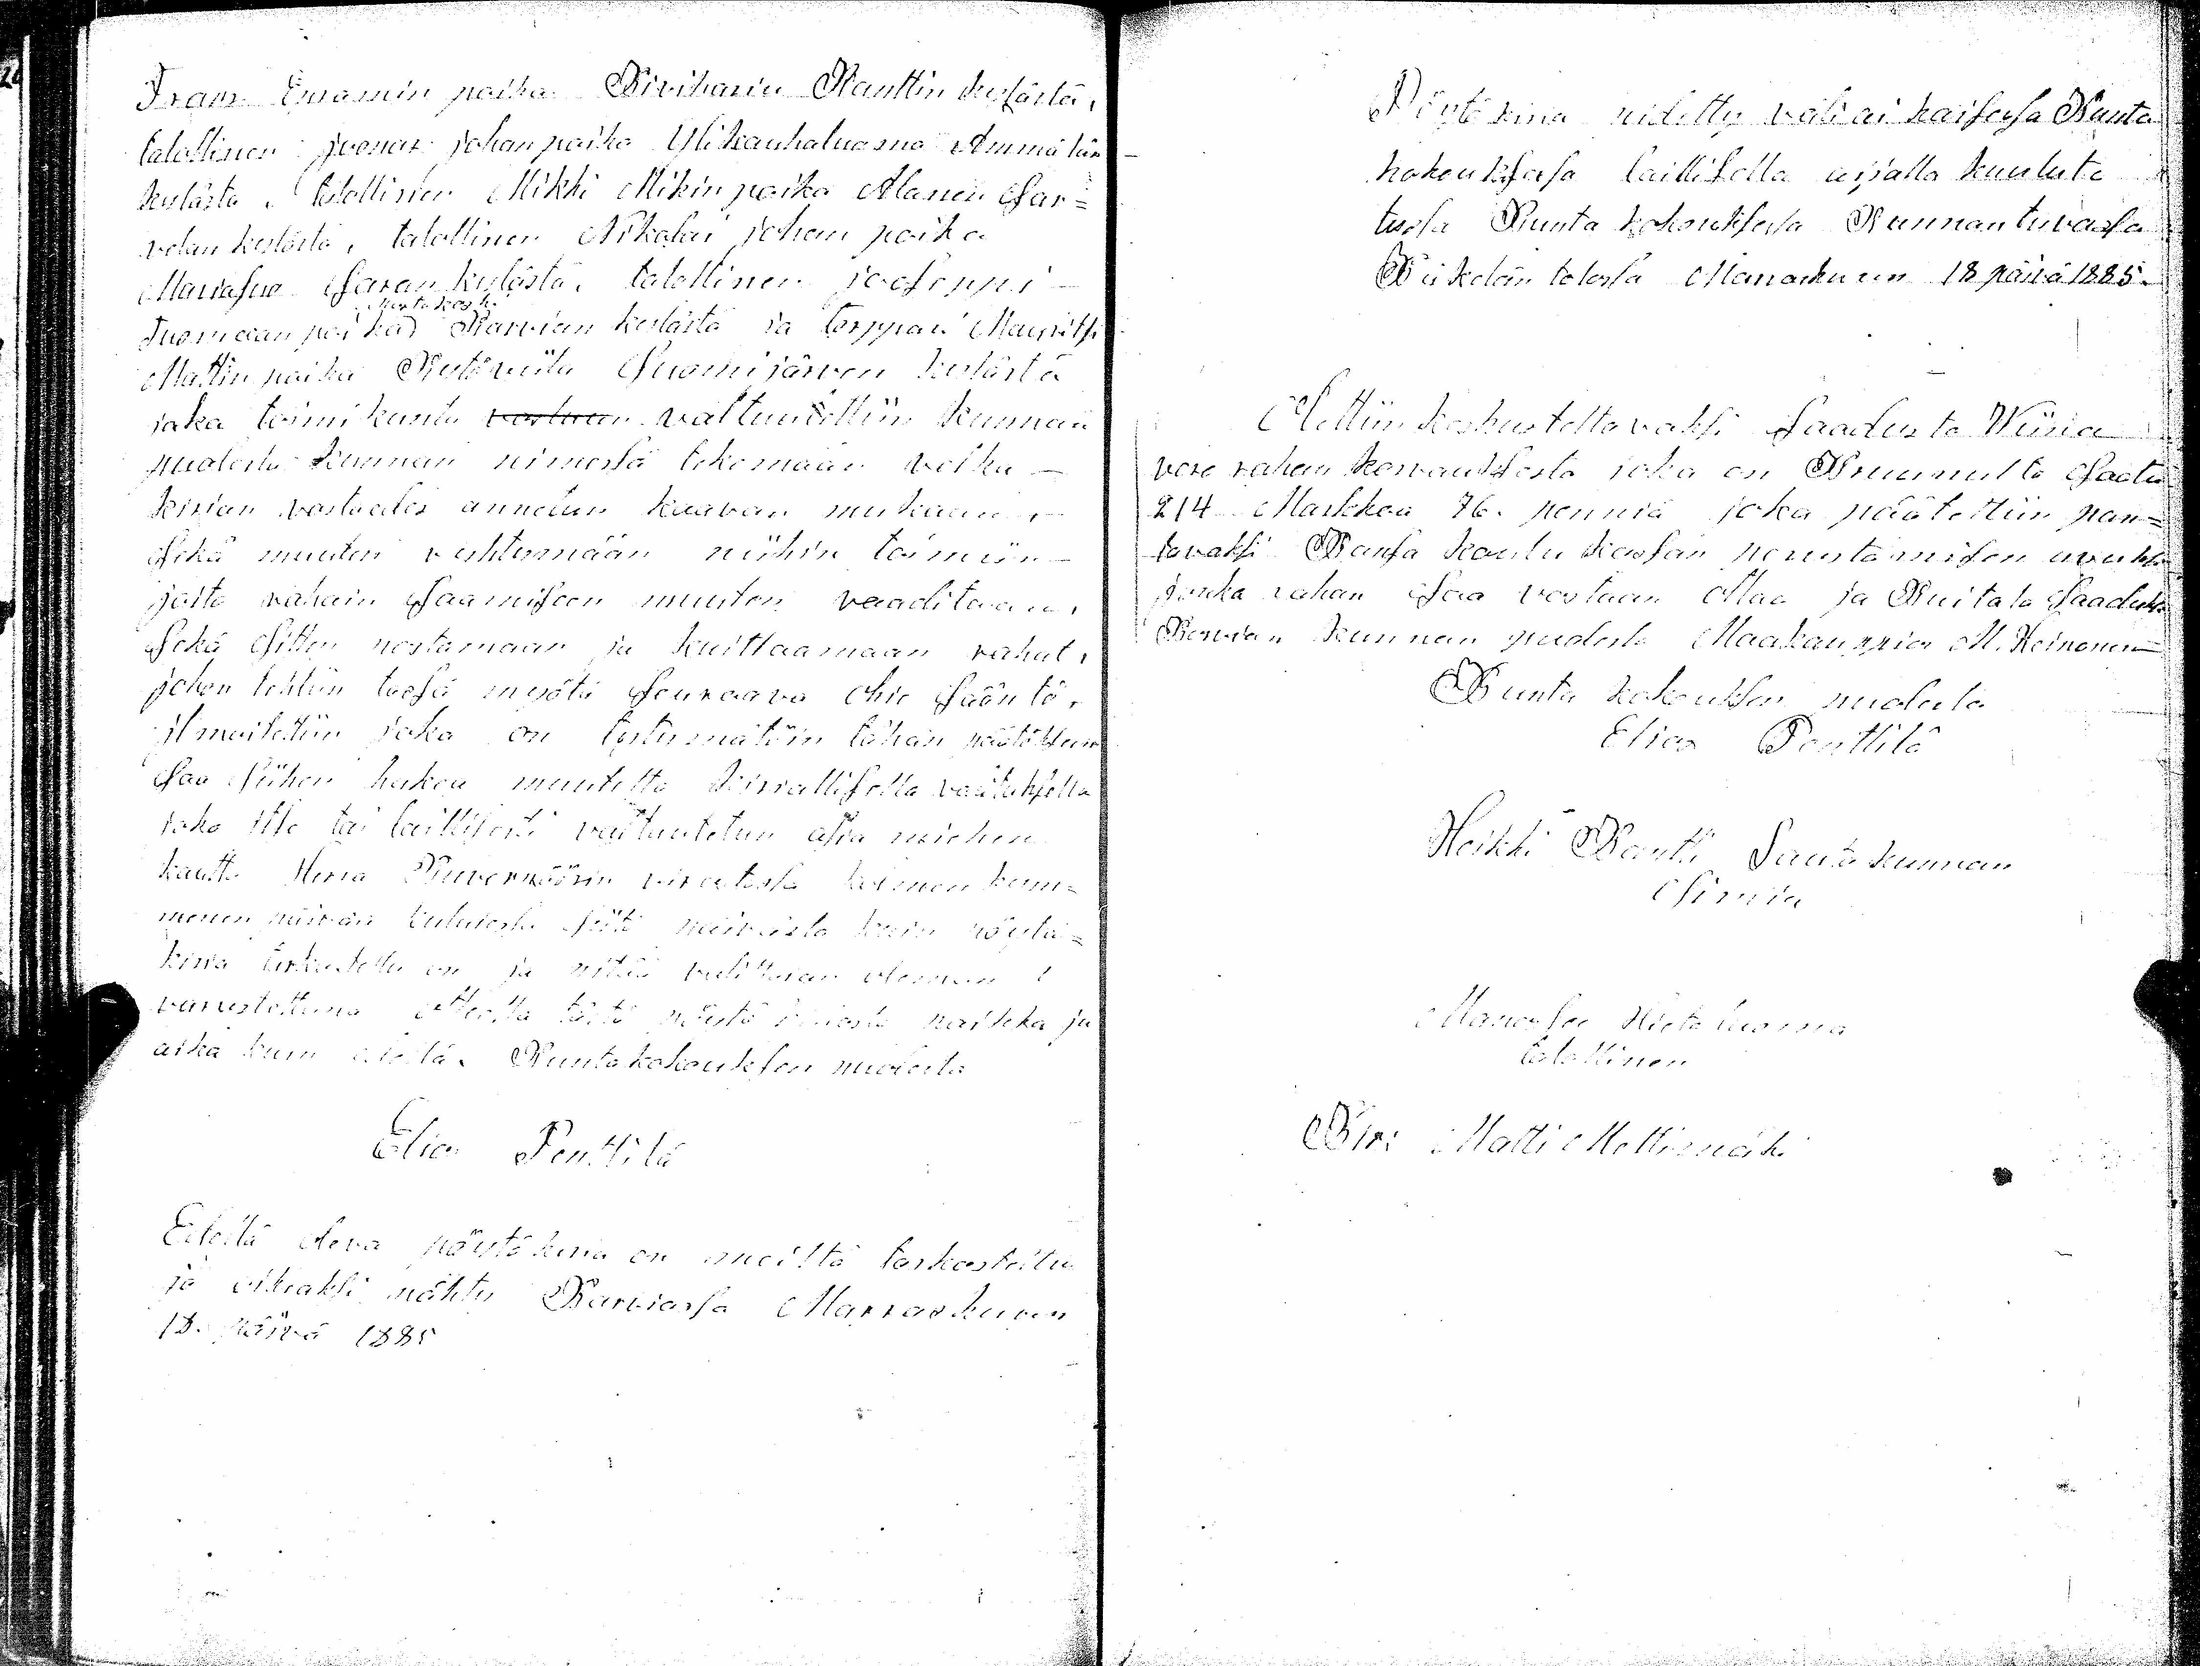 Frans Enromin poika Kiviharju Kanttin kylästä,
talollinen joonas johanpoika Ylikauhaluoma Ämmälän
kylästä, talollinen Mikki Mikinpoika Alanen Sar=
velan kylästä, talollinen Nikolai johan poika
Mariasuo Saran kylästä, talollinen jooseppi
Mustakoski
Tuomaanpoika Karvian kylästä ja torppari Mauritsi
Mattinpoika Kytöviita Suomijärven kylästä
joka toimikunta vastaan valtuutettiin kunnan
puolesta kunnan nimessä tekemään velka
kirjan vastaedes annetun kaavan mukaan,
sekä muuten ryhtymään niihin toimiin
joita rahain saamiseen muuten vaaditaan,
sekä sitten nostamaan ja kuittaamaan rahat,
johon tehtiin tässä myötä seuraava ohje sääntö,
ilmoitettiin joka on tytymätöin tähän päätökseen
saa siihen hakea muutosta kirjallisella valituksella
joko itse tai laillisesti valtuutetun asia miehen
kautta Herra Kuvernöörin virastosta kolmen kym=
menen päivän kuluessa siitä päivästä kuin pöytä=
kirja tarkastettu on ja pitää valittajan oleman
varustettuna otteella tästä pöytäkirjasta paikka ja
aika kuin edellä. Kuntakokouksen puolesta
Elias Penttilä
Edellä oleva pöytäkirja on meiltä tarkastettu
ja oikeaksi nähty Karviassa Marraskuun
18. päivä 1885
Pöytäkirja pidetty väliaikaisessa Kunta
kokouksessa laillisella ajalla kuulute
tusta Kunta kokouksesta Kunnantuvassa
Pukelan talossa Marraskuun 18 päivä 1885.
Otettiin keskusteltavaksi saadusta Viina
vero rahan korvauksesta joka on Kruunulta saatu
214 Markkaa 76. penniä joka päätettiin pan=
tavaksi Kansakoulu kassan perustamisen avuksi
jonka rahan saa vastaan ottaa ja Kuitata saaduksi
Karvian kunnan puolesta Maakauppias M. Heinonen
Kunta kokouksen puolesta
Elias Penttilä
Heikki Kantti Lautakunnan
Esimies
Manasse Hietaluoma
talollinen
Matti Mettomäki